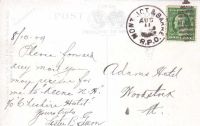 POST
MONT. JCT & BARRE
AUG
11
R.P.O.
8/10.09
Please forward
any mail you
may receive for
me to Keene N.H.
Cheshire Hotel
Yours truly
Adams Hotel
Woodstock
Vt.